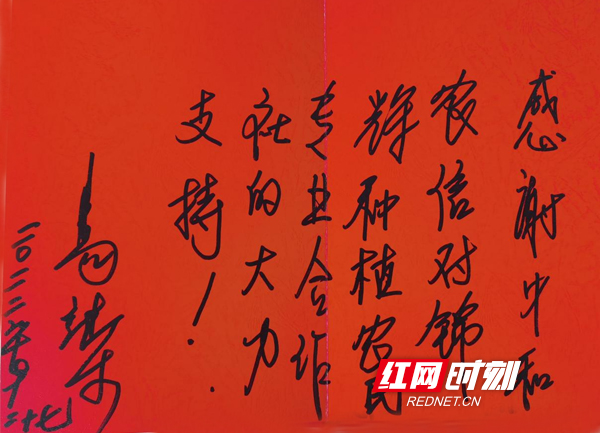 感谢中和
农信对锦
辉种植农民
专业合作
社的大力
支持！
高
二〇二二年
二十七
红网时刻
REDNET.CN